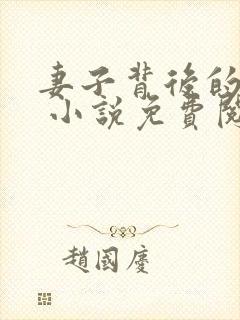 妻子背後的
小說免費閱
趙國慶